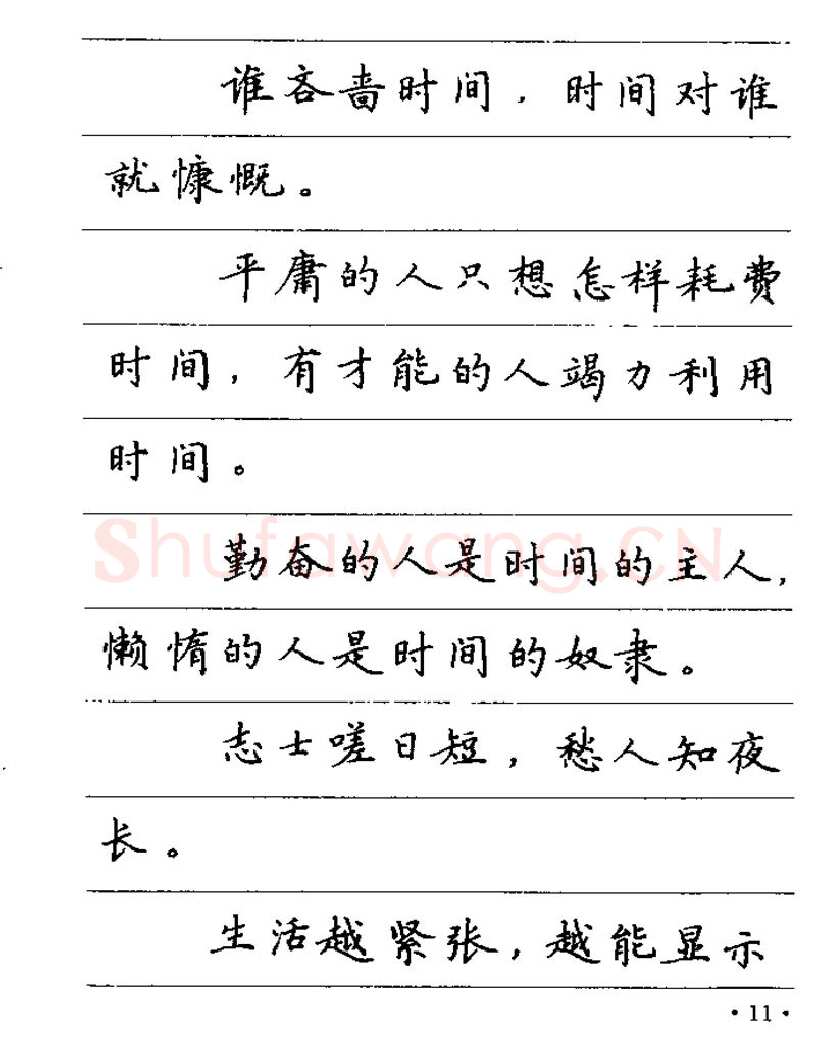 谁吝啬时间，时间对谁
就慷慨。
平庸的人只想怎样耗费
时间，有才能的人竭力利用
时间。
Shufawang.CN
勤奋的人是时间的主人，
懒惰的人是时间的奴隶。
志士嗟日短，愁人知夜
长。
生活越紧张，越能显示
·11·